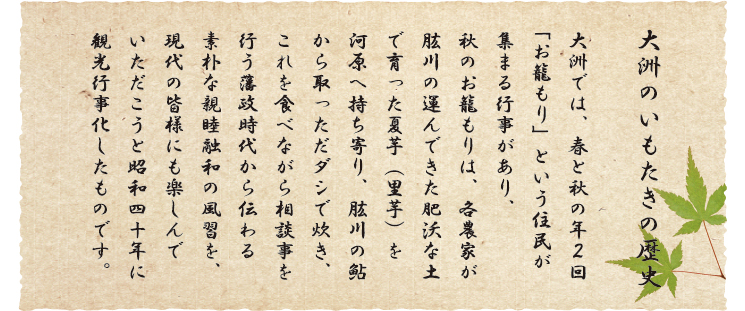 大洲のいもたきの歴史
大洲では、春と秋の年2回
「お籠もり」という住民が
集まる行事があり、
秋のお籠もりは、各農家が
肱川の運んできた肥沃な土
で育った夏芋（里芋）を
河原へ持ち寄り、肱川の鮎
から取っただダシで炊き、
これを食べながら相談事を
行う藩政時代から伝わる
素朴な親睦融和の風習を、
現代の皆様にも楽しんで
いただこうと昭和四十年に
観光行事化したものです。